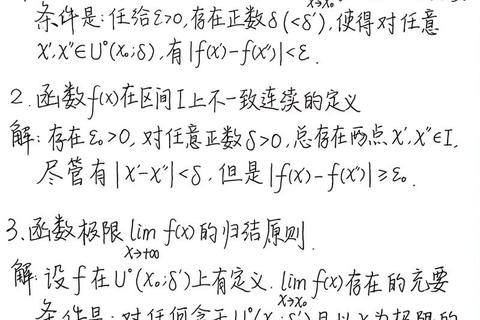 x→x₀
条件是:任给ε>0,存在正数δ(<δ′),使得对任意
x′,x″∈U°(x₀;δ),有|f(x′)-f(x″)|<ε.
2.函数f(x)在区间I上不一致连续的定义
解:存在ε₀>0,对任意正数δ>0,总存在两点x′,x″∈I,
尽管有|x′-x″|<δ,但是|f(x′)-f(x″)|≥ε₀.
3.函数极限lim f(x)的归结原则.
x→+∞
解:设f在U°(x₀;δ′)上有定义.lim f(x)存在的充要
x→x₀
条件是:对任何含于U°(x₀;δ′)且以x₀为极限的